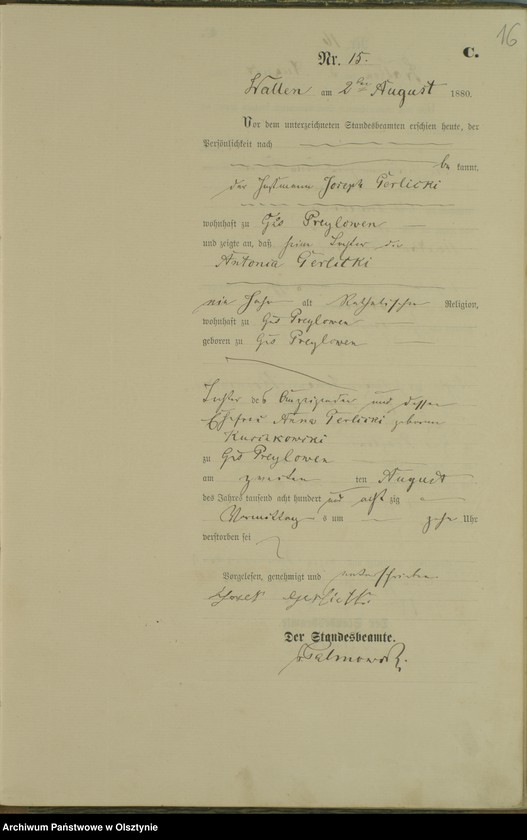 16
Nr. 15.
C.
Wallen am 2ten August 1880.
Vor dem unterzeichneten Standesbeamten erschien heute, der
Persönlichkeit nach
be kannt,
der Joseph Gerlicki
wohnhaft zu Preylowen
und zeigte an, daß seine Tochter die
Antonia Gerlitki
ein Jahr alt Katholischer Religion,
wohnhaft zu Preylowen
geboren zu Preylowen
Tochter des Anzeigenden und dessen
Ehefrau Anna Gerlicki geborene
zu Preylowen
am zweiten ten August
des Jahres tausend acht hundert und acht zig
Vormittag s um zehn Uhr
verstorben sei
Vorgelesen, genehmigt und unterschrieben
Der Standesbeamte.
Archiwum Państwowe w Olsztynie